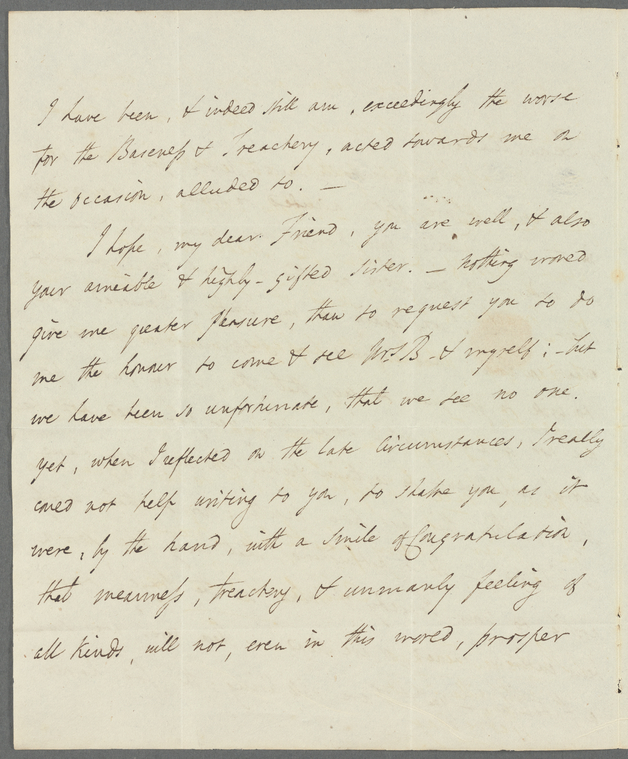 I have been, & indeed still am, exceedingly the worse
for the Baseness & Treachery, acted towards me on
the occasion, alluded to. —
I hope, my dear Friend, you are well, & also
your amiable & highly-gifted Sister. — Nothing would
give me greater Pleasure, than to request you to do
me the honour to come & see Mrs B & myself; — but
we have been so unfortunate, that we see no one.
yet, when I reflected on the late Circumstances, I really
could not help writing to you, to shake you, as it
were, by the hand, with a Smile of Congratulation,
that meanness, treachery, & unmanly feeling of
all Kinds, will not, even in this world, prosper